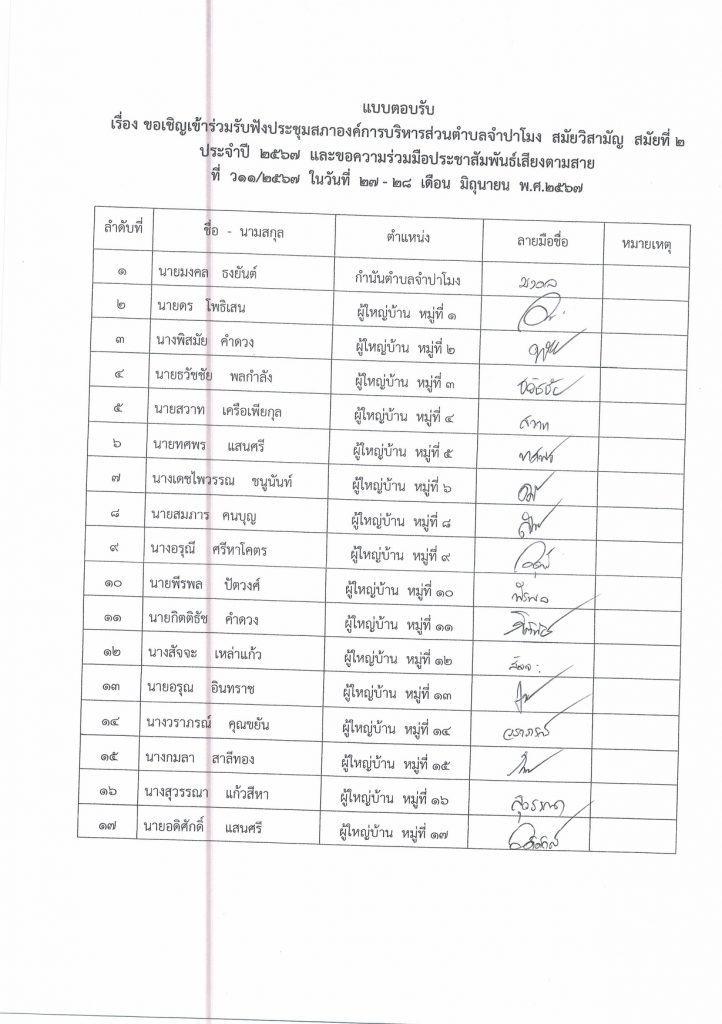 แบบตอบรับ
เรื่อง ขอเชิญเข้าร่วมรับฟังประชุมสภาองค์การบริหารส่วนตำบลจำปาโมง สมัยวิสามัญ สมัยที่ ๒
ประจำปี ๒๕๖๗ และขอความร่วมมือประชาสัมพันธ์เสียงตามสาย
ที่ ว๑๑/๒๕๖๗ ในวันที่ ๒๗ - ๒๘ เดือน มิถุนายน พ.ศ.๒๕๖๗
ลำดับที่ ชื่อ - นามสกุล ตำแหน่ง ลายมือชื่อ หมายเหตุ
๑ นายมงคล ธงยันต์ กำนันตำบลจำปาโมง มงคล
๒ นายดร โพธิเสน ผู้ใหญ่บ้าน หมู่ที่ ๑
๓ นางพิสมัย คำดวง ผู้ใหญ่บ้าน หมู่ที่ ๒
๔ นายธวัชชัย พลกำลัง ผู้ใหญ่บ้าน หมู่ที่ ๓ ธวัชชัย
๕ นายสวาท เครือเพียกุล ผู้ใหญ่บ้าน หมู่ที่ ๔ สวาท
๖ นายทศพร แสนศรี ผู้ใหญ่บ้าน หมู่ที่ ๕ ทศพร
๗ นางเดชไพวรรณ ชนูนันท์ ผู้ใหญ่บ้าน หมู่ที่ ๖
๘ นายสมภาร คนบุญ ผู้ใหญ่บ้าน หมู่ที่ ๘
๙ นางอรุณี ศรีหาโคตร ผู้ใหญ่บ้าน หมู่ที่ ๙
๑๐ นายพีรพล ปัตวงศ์ ผู้ใหญ่บ้าน หมู่ที่ ๑๐ พีรพล
๑๑ นายกิตติธัช คำดวง ผู้ใหญ่บ้าน หมู่ที่ ๑๑
๑๒ นางสัจจะ เหล่าแก้ว ผู้ใหญ่บ้าน หมู่ที่ ๑๒ สัจจะ
๑๓ นายอรุณ อินทราช ผู้ใหญ่บ้าน หมู่ที่ ๑๓
๑๔ นางวราภรณ์ คุณขยัน ผู้ใหญ่บ้าน หมู่ที่ ๑๔ วราภรณ์
๑๕ นางกมลา สาลีทอง ผู้ใหญ่บ้าน หมู่ที่ ๑๕
๑๖ นางสุวรรณา แก้วสีหา ผู้ใหญ่บ้าน หมู่ที่ ๑๖ สุวรรณา
๑๗ นายอดิศักดิ์ แสนศรี ผู้ใหญ่บ้าน หมู่ที่ ๑๗